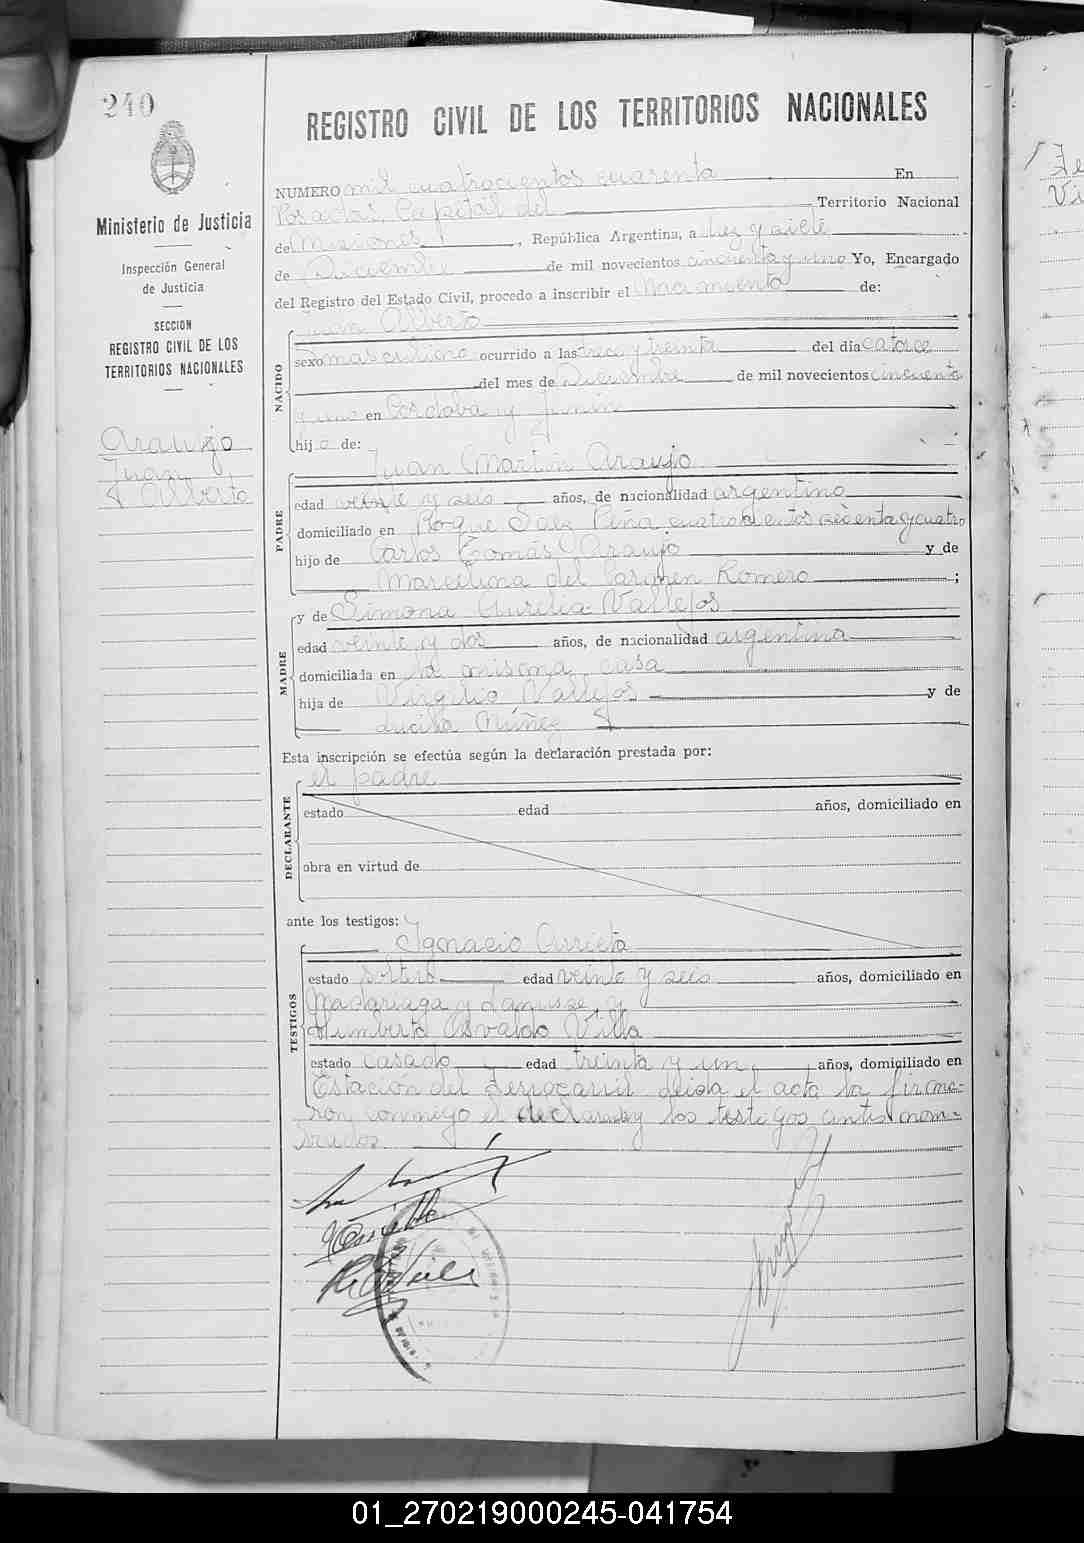 240
Ministerio de Justicia
Inspección General
de Justicia
SECCION
REGISTRO CIVIL DE LOS
TERRITORIOS NACIONALES
Araujo
Juan
Alberto
REGISTRO CIVIL DE LOS TERRITORIOS NACIONALES
NUMERO mil cuatrocientos cuarenta En
Posadas, Capital del Territorio Nacional
de Misiones, República Argentina, a diez y siete
de Diciembre de mil novecientos cincuenta y uno Yo, Encargado
del Registro del Estado Civil, procedo a inscribir el nacimiento de:
NACIDO
Juan Alberto
sexo masculino ocurrido a las trece y treinta del día catorce
del mes de Diciembre de mil novecientos cincuenta
y uno en Córdoba y Junín
hijo de:
PADRE
Juan Martín Araujo
edad veinte y seis años, de nacionalidad argentina
domiciliado en Roque Saenz Peña cuatrocientos sesenta y cuatro
hijo de Carlos Tomás Araujo y de
Marcelina del Carmen Romero ;
MADRE
y de Simona Aurelia Vallejos
edad veinte y dos años, de nacionalidad argentina
domiciliada en la misma casa
hija de Virgilio Vallejos y de
Lucila Núñez
Esta inscripción se efectúa según la declaración prestada por:
DECLARANTE
el padre
estado edad años, domiciliado en
obra en virtud de
ante los testigos:
TESTIGOS
Ignacio Arrieta
estado soltero edad veinte y seis años, domiciliado en
Madariaga y y
Humberto Osvaldo Villa
estado casado edad treinta y un años, domiciliado en
Estación del Ferrocarril leida el acta la firma-
ron conmigo el declarante y los testigos antes nom-
brados
01_270219000245-041754